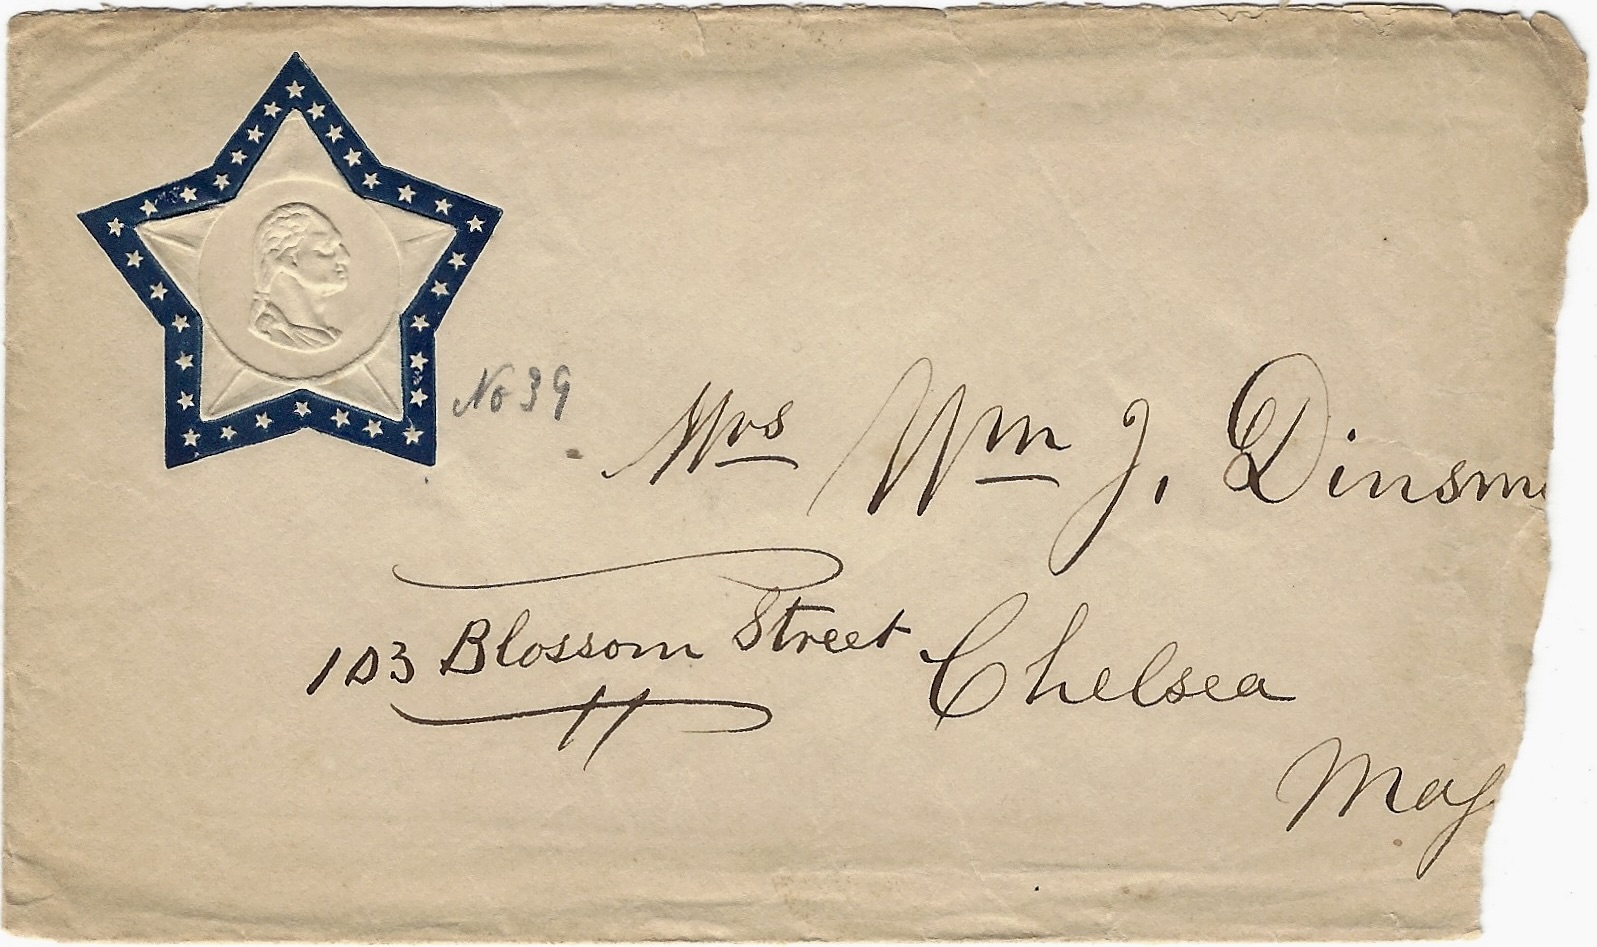 No 39
Mrs Wm J. Dinsm
103 Blossom Street
Chelsea
Mas